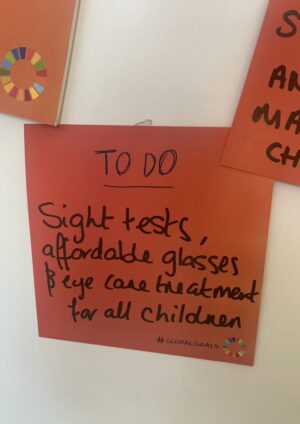 TO DO
Sight tests,
affordable glasses
& eye care treatment
for all children
#GLOBALGOALS
S
AN
MA
CH